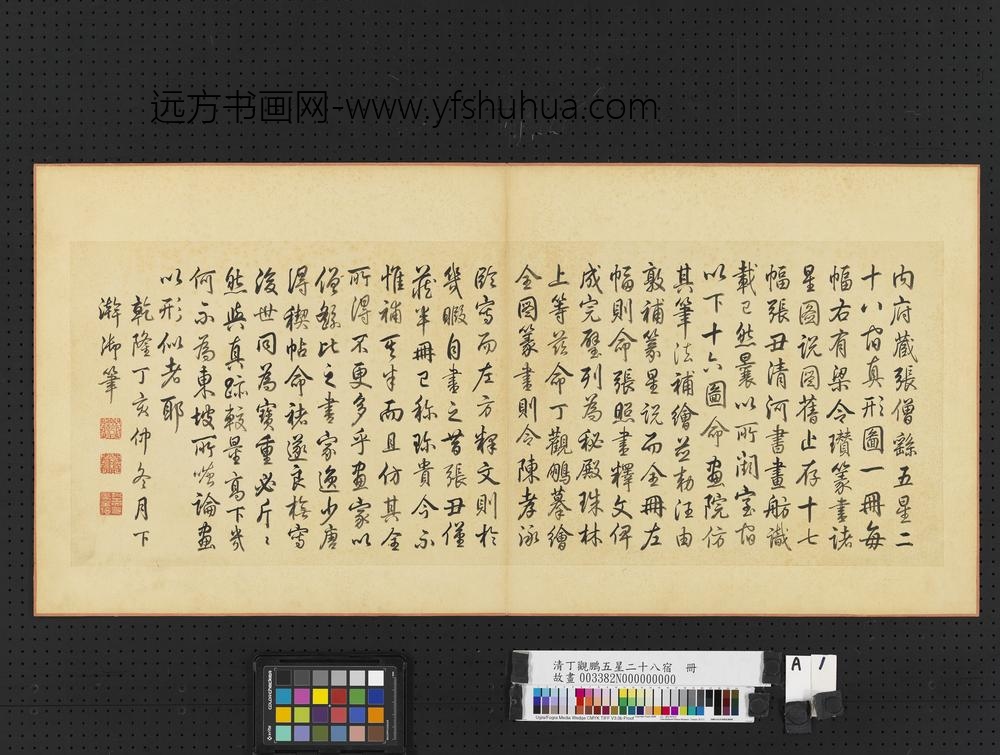 远方书画网-www.yfshuhua.com
內府藏張僧繇五星二
十八宿真形圖一冊每
幅右有梁令瓚篆書諸
星圖說圖舊止存十七
幅張丑清河書畫舫識
載已然曩以所闕室宿
以下十六圖命畫院仿
其筆法補繪並勅汪由
敦補篆星說而全冊左
幅則命張照書釋文俾
成完璧列為秘殿珠林
上等茲命丁觀鵬摹繪
全圖篆書則令陳孝泳
臨寫而左方釋文則於
幾暇自書之昔張丑僅
藏半冊已稱珍貴今不
惟補其半而且仿其全
所得不更多乎畫家以
僧繇比之書家逸少唐
得稧帖命褚遂良於寫
後世同為寶重必斤〻
然與真跡較量高下幾
何不為東坡所嗤論畫
以形似者耶
乾隆丁亥仲冬月下
澣御筆
清丁觀鵬五星二十八宿 冊
故畫 003382N000000000
Ugra/Fogra Media Wedge CMYK TIFF V3.0b Proof
A 1